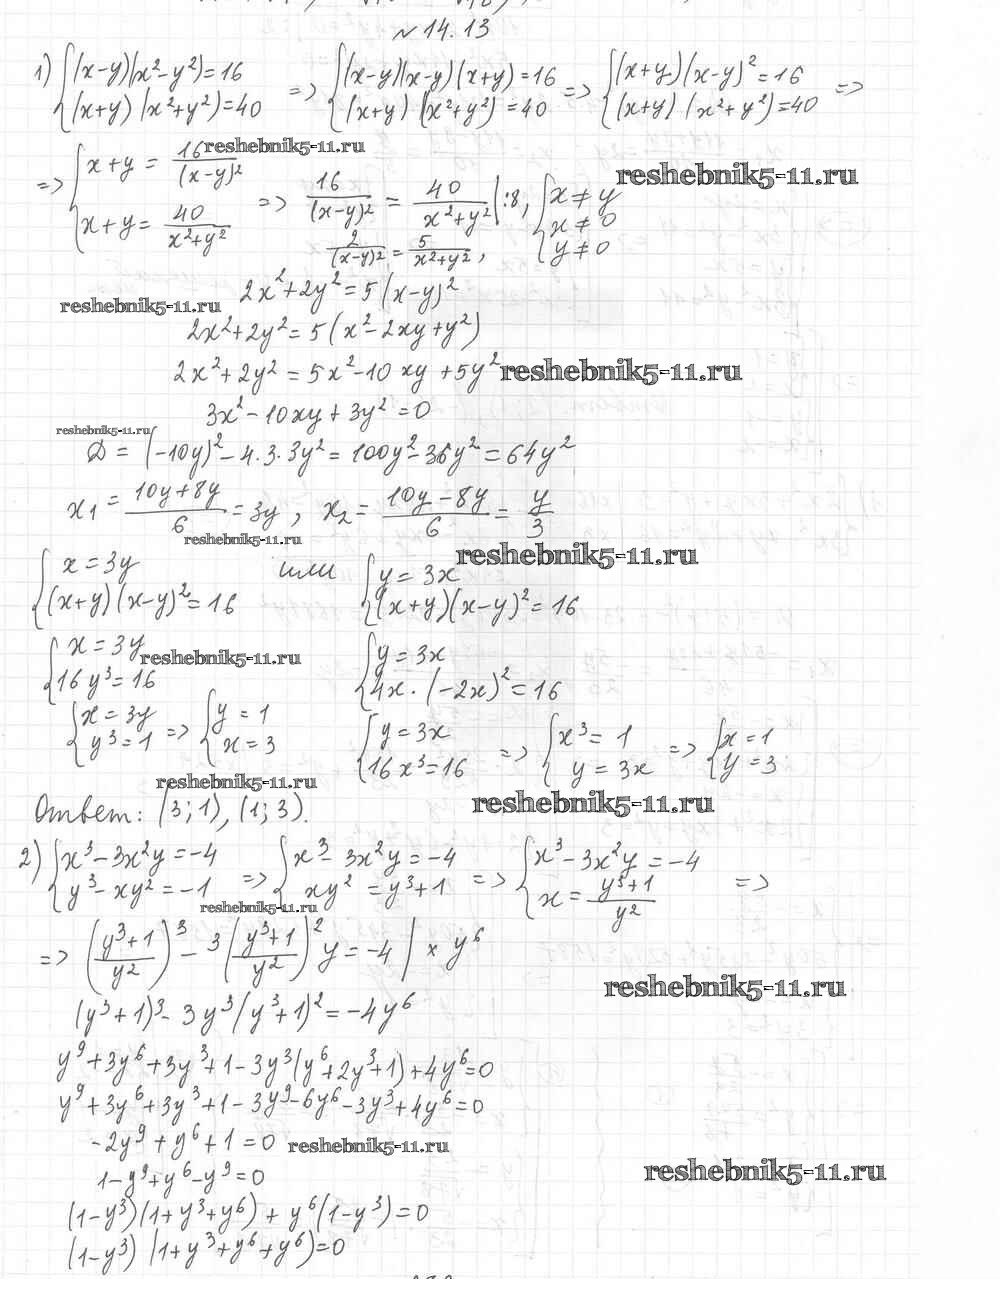 № 14.13
1) { (x-y)(x²-y²)=16 => { (x-y)(x-y)(x+y)=16 => { (x+y)(x-y)²=16 =>
(x+y)(x²+y²)=40 (x+y)(x²+y²)=40 (x+y)(x²+y²)=40
reshebnik5-11.ru
=> { x+y = 16/(x-y)² => 16/(x-y)² = 40/(x²+y²) |:8, { x≠y
x+y = 40/(x²+y²) x≠0
2/(x-y)² = 5/(x²+y²), y≠0
reshebnik5-11.ru
2x²+2y²=5(x-y)²
reshebnik5-11.ru
2x²+2y²=5(x²-2xy+y²)
2x²+2y²=5x²-10xy+5y²
reshebnik5-11.ru
3x²-10xy+3y²=0
reshebnik5-11.ru
D = (-10y)²-4.3.3y²=100y²-36y²=64y²
x₁ = (10y+8y)/6 = 3y, x₂ = (10y-8y)/6 = y/3
reshebnik5-11.ru
reshebnik5-11.ru
{ x=3y или { y=3x
(x+y)(x-y)²=16 (x+y)(x-y)²=16
{ x=3y { y=3x
reshebnik5-11.ru
16y³=16 4x·(-2x)²=16
{ x=3y => { y=1 { y=3x => { x³=1 => { x=1
y³=1 x=3 16x³=16 y=3x y=3
reshebnik5-11.ru
Ответ: (3;1), (1;3).
reshebnik5-11.ru
2) { x³-3x²y=-4 => { x³-3x²y=-4 => { x³-3x²y=-4 =>
y³-xy²=-1 xy²=y³+1 x=(y³+1)/y²
reshebnik5-11.ru
=> ((y³+1)/y²)³ - 3((y³+1)/y²)² y = -4 | × y⁶
reshebnik5-11.ru
(y³+1)³-3y³(y³+1)²=-4y⁶
y⁹+3y⁶+3y³+1-3y³(y⁶+2y³+1)+4y⁶=0
y⁹+3y⁶+3y³+1-3y⁹-6y⁶-3y³+4y⁶=0
-2y⁹+y⁶+1=0
reshebnik5-11.ru
1-y⁹+y⁶-y⁹=0
reshebnik5-11.ru
(1-y³)(1+y³+y⁶)+y⁶(1-y³)=0
(1-y³)(1+y³+y⁶+y⁶)=0